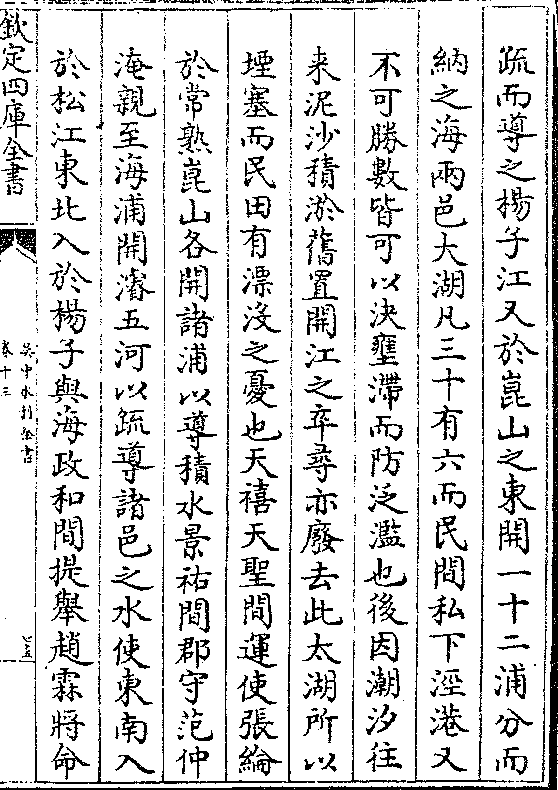 疏而導之楊子江又於崑山之東開一十二浦分而
納之海兩邑大湖凡三十有六而民間私下涇港又
不可勝數皆可以決壅滯而防泛濫也後因潮汐往
来泥沙積淤舊置開江之卒尋亦廢去此太湖所以
堙塞而民田有漂沒之憂也天禧天聖間運使張綸
於常熟崑山各開諸浦以導積水景祐間郡守范仲
淹親至海浦開濬五河以疏導諸邑之水使東南入
於松江東北入於楊子與海政和間提舉趙霖將命
欽定四庫全書
吳中水利全書
卷十三